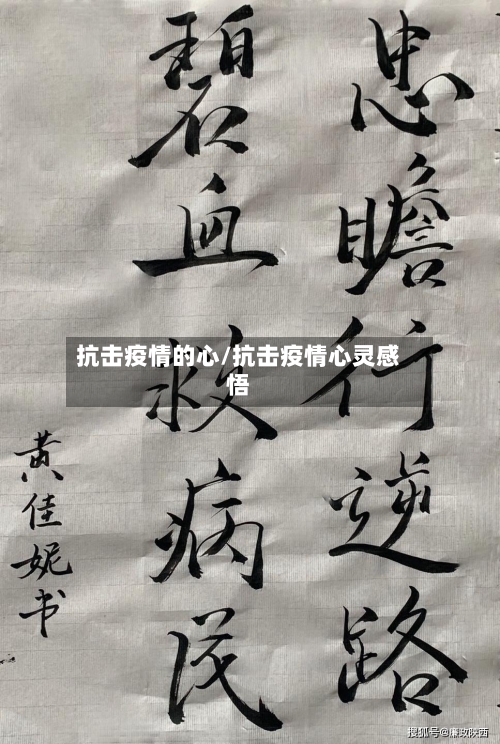 忠瞻行逆路
碧血救病民
黄佳妮书
抗击疫情的心/抗击疫情心灵感
悟
搜狐号@廉政陕西